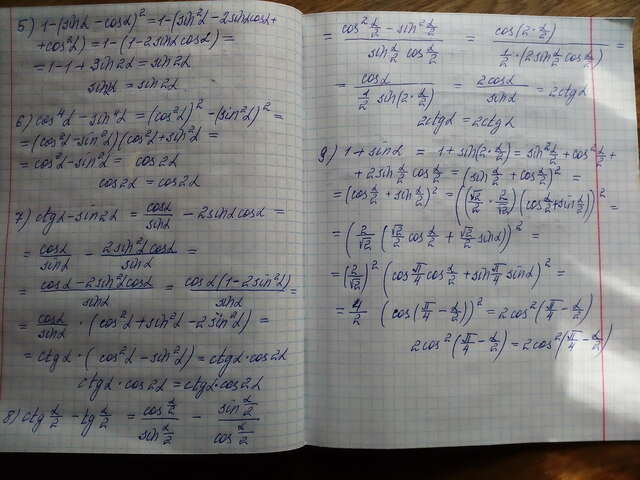 5) 1-(sinα-cosα)² = 1-(sin²α-2sinαcosα+
+cos²α) = 1-(1-2sinαcosα) =
= 1-1+sin2α = sin2α
sin2α = sin2α
6) cos⁴α-sin⁴α = (cos²α)² - (sin²α)² =
= (cos²α-sin²α)(cos²α+sin²α =
= cos²α-sin²α = cos2α
cos2α = cos2α
7) ctgα-sin2α = cosα/sinα - 2sinαcosα =
= cosα/sinα - 2sin²αcosα/sinα =
= cosα-2sin²αcosα/sinα = cosα(1-2sin²α)/sinα =
= cosα/sinα · (cos²α+sin²α-2sin²α) =
= ctgα·(cos²α-sin²α) = ctgα·cos2α
ctgα·cos2α = ctgα·cos2α
8) ctg α/2 - tg α/2 = cos α/2 / sin α/2 - sin α/2 / cos α/2
= cos² α/2 - sin² α/2 / sin α/2 cos α/2 = cos(2·α/2) / 1/2·(2sin α/2 cos α/2) =
= cosα / 1/2 sin(2·α/2) = 2cosα/sinα = 2ctgα
2ctgα = 2ctgα
9) 1+sinα = 1+sin(2·α/2) = sin² α/2 + cos² α/2 +
+ 2sin α/2 cos α/2 = (sin α/2 + cos α/2)² =
= (cos α/2 + sin α/2)² = ((√2/2 · 2/√2)(cos α/2 + sin α/2))² =
= (2/√2 (√2/2 cos α/2 + √2/2 sin α/2))² =
= (2/√2)² (cos π/4 cos α/2 + sin π/4 sin α/2)² =
= 4/2 (cos(π/4 - α/2))² = 2cos²(π/4 - α/2)
2cos²(π/4 - α/2) = 2cos²(π/4 - α/2)